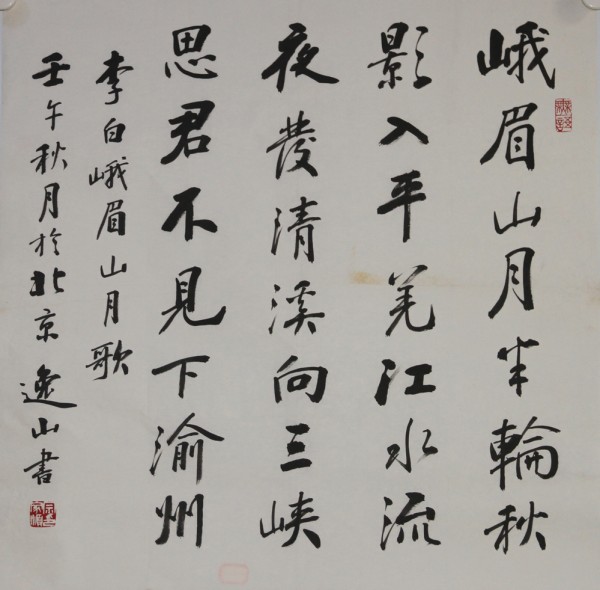 峨眉山月半輪秋
影入平羌江水流
夜發清溪向三峽
思君不見下渝州
李白峨眉山月歌
壬午秋月於北京逸山書